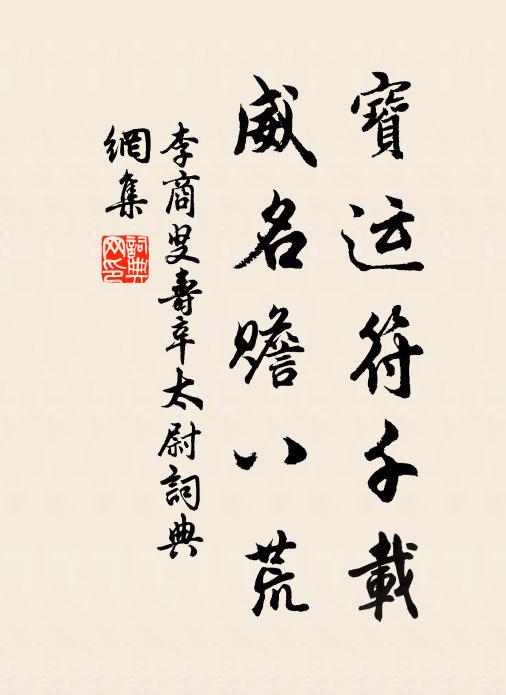 寶运符千載
威名赡八荒
李商叟壽辛太尉詞典
網集
詞典
网印